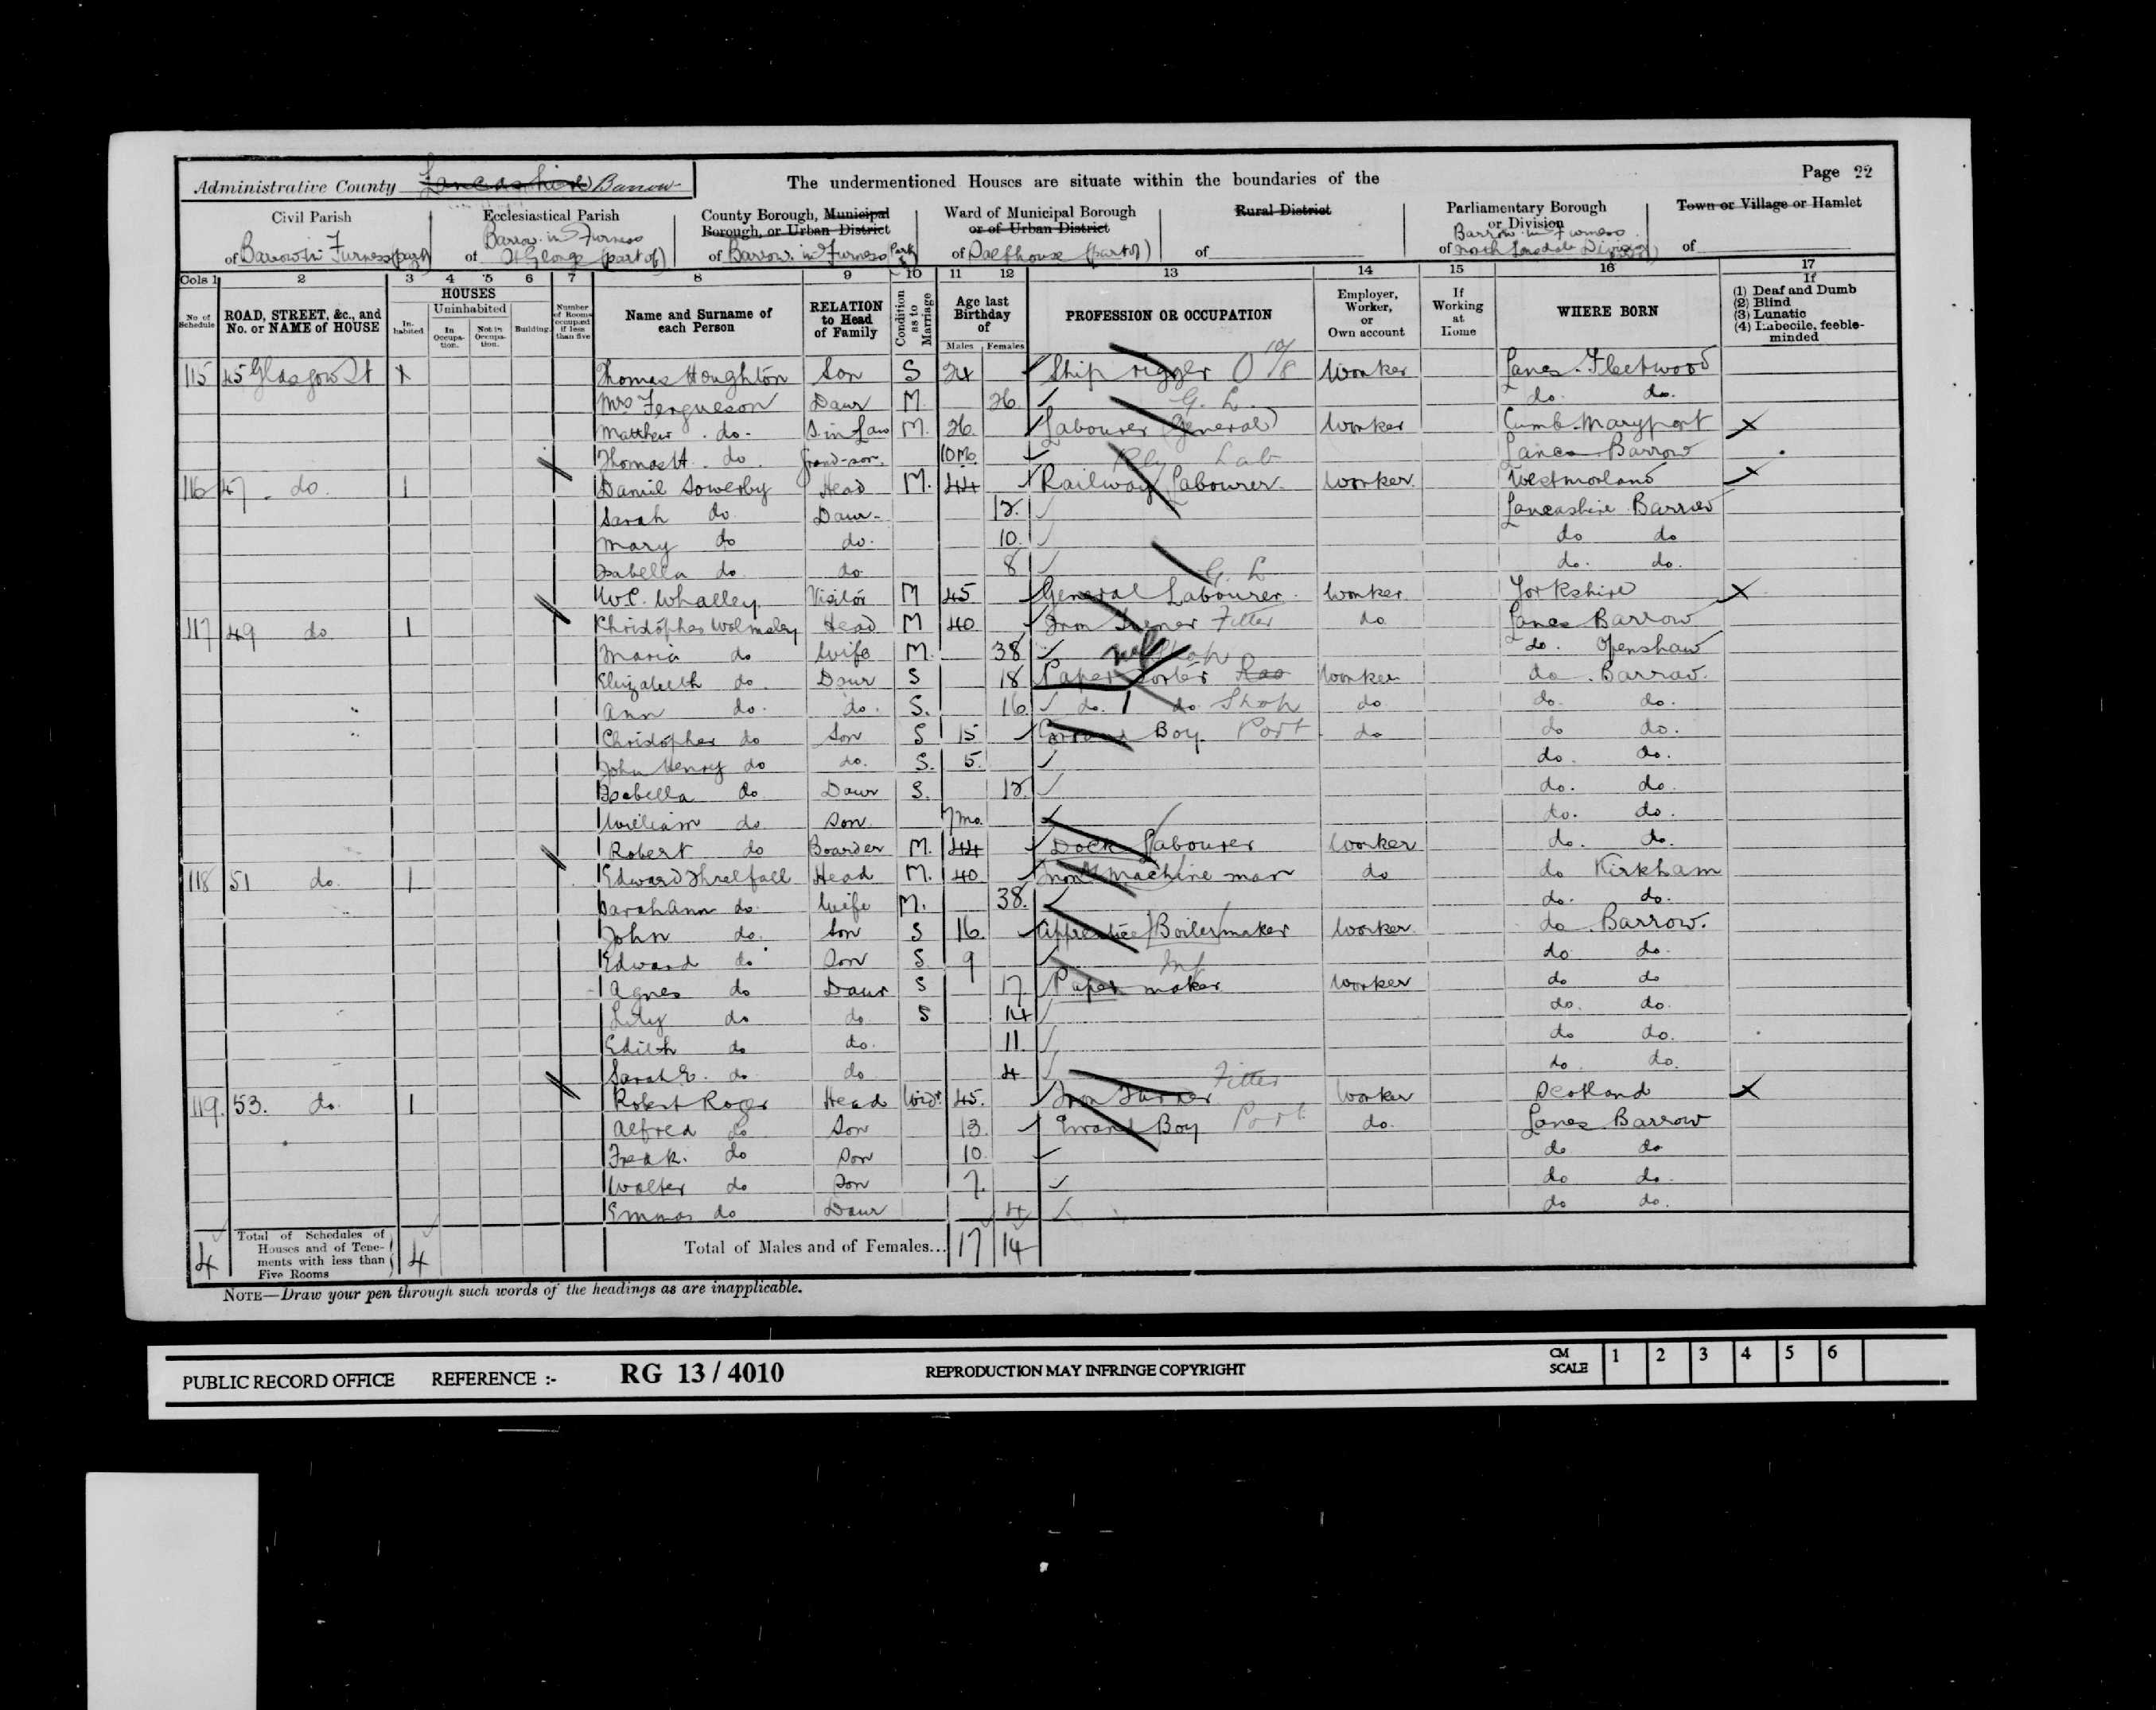 Administrative County Lancashire Barrow
The undermentioned Houses are situate within the boundaries of the
Page 22
Civil Parish
of Barrow in Furness (part)
Ecclesiastical Parish
Barrow in Furness
of St George (part of)
County Borough, Municipal
Borough, or Urban District
of Barrow in Furness Part of
Ward of Municipal Borough
or of Urban District
of (part of)
Rural District
of
Parliamentary Borough
or Division
Barrow in Furness
of North Lonsdale Division
Town or Village or Hamlet
of
Cols 1 2 3 4 5 6 7 8 9 10 11 12 13 14 15 16 17
No of Schedule
ROAD, STREET, &c., and No. or NAME of HOUSE
HOUSES
In-habited
Uninhabited
In Occupa-tion.
Not in Occupa-tion.
Building.
Number of Rooms occupied if less than five
Name and Surname of each Person
RELATION to Head of Family
Condition as to Marriage
Age last Birthday of
Males Females
PROFESSION OR OCCUPATION
Employer, Worker, or Own account
If Working at Home
WHERE BORN
If
(1) Deaf and Dumb
(2) Blind
(3) Lunatic
(4) Imbecile, feeble-minded
115 45 Glasgow St X Thomas Houghton Son S 24 Ship rigger Worker Lancs. Fleetwood
Mrs Fergueson Daur M 26 do. do.
Matthew do. S. in Law M. 26 Labourer (General) G. L. Worker Cumb. Maryport X
Thomas H. do. Grand-son. 10 Mo. Lancs Barrow
116 47 do. 1 Daniel Sowerby Head M. 44 Railway Labourer Rly Lab Worker. Westmorland X
Sarah do Daur. 12. Lancashire Barrow
Mary do do. 10. do do
Isabella do. do 8 do. do.
W.C. Whalley Visitor M 45 General Labourer G. L Worker Yorkshire X
117 49 do 1 Christopher Wolmsley Head M 40 Iron Turner Fitter do Lancs Barrow
Maria do Wife M. 38 do. Openshaw
Elizabeth do. Daur S 18 Paper Sorter Worker do. Barrow.
Ann do. do. S. 16 do. do Shop do do. do.
Christopher do Son S 15 Errand Boy. Port do do do.
John Henry do do. S. 5. do. do.
Isabella do. Daur S. 12. do. do.
William do. Son. 7 mo. do. do.
Robert do Boarder M. 44 Dock Labourer Worker do. do.
118 51 do. 1 Edward Threlfall Head M. 40 Iron Machine man do do Kirkham
Sarah Ann do. Wife M. 38. do. do.
John do. Son S 16. Apprentice Boilermaker Worker. do Barrow.
Edward do Son S 9 do do.
Agnes do Daur S 17 Paper maker Worker do do
Lily do do. S 14 do. do.
Edith do do. 11 do do.
Sarah E. do do 4 do do.
119. 53. do. 1 Robert Roger Head Widr 45. Iron Turner Fitter Worker Scotland X
Alfred do Son 13. Errand Boy Port. do. Lancs Barrow
Fredk. do Son 10 do do
Walter do Son 7. do do.
Emma do Daur 4 do do.
4 Total of Schedules of Houses and of Tene-ments with less than Five Rooms 4 Total of Males and of Females... 17 14
NOTE—Draw your pen through such words of the headings as are inapplicable.
PUBLIC RECORD OFFICE REFERENCE :- RG 13 / 4010 REPRODUCTION MAY INFRINGE COPYRIGHT CM SCALE 1 2 3 4 5 6